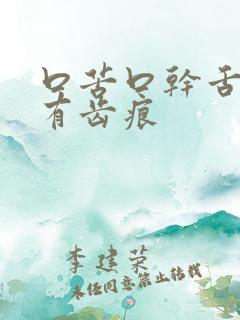 口苦口幹舌
有齿痕
李建荣
未经同意禁止转载